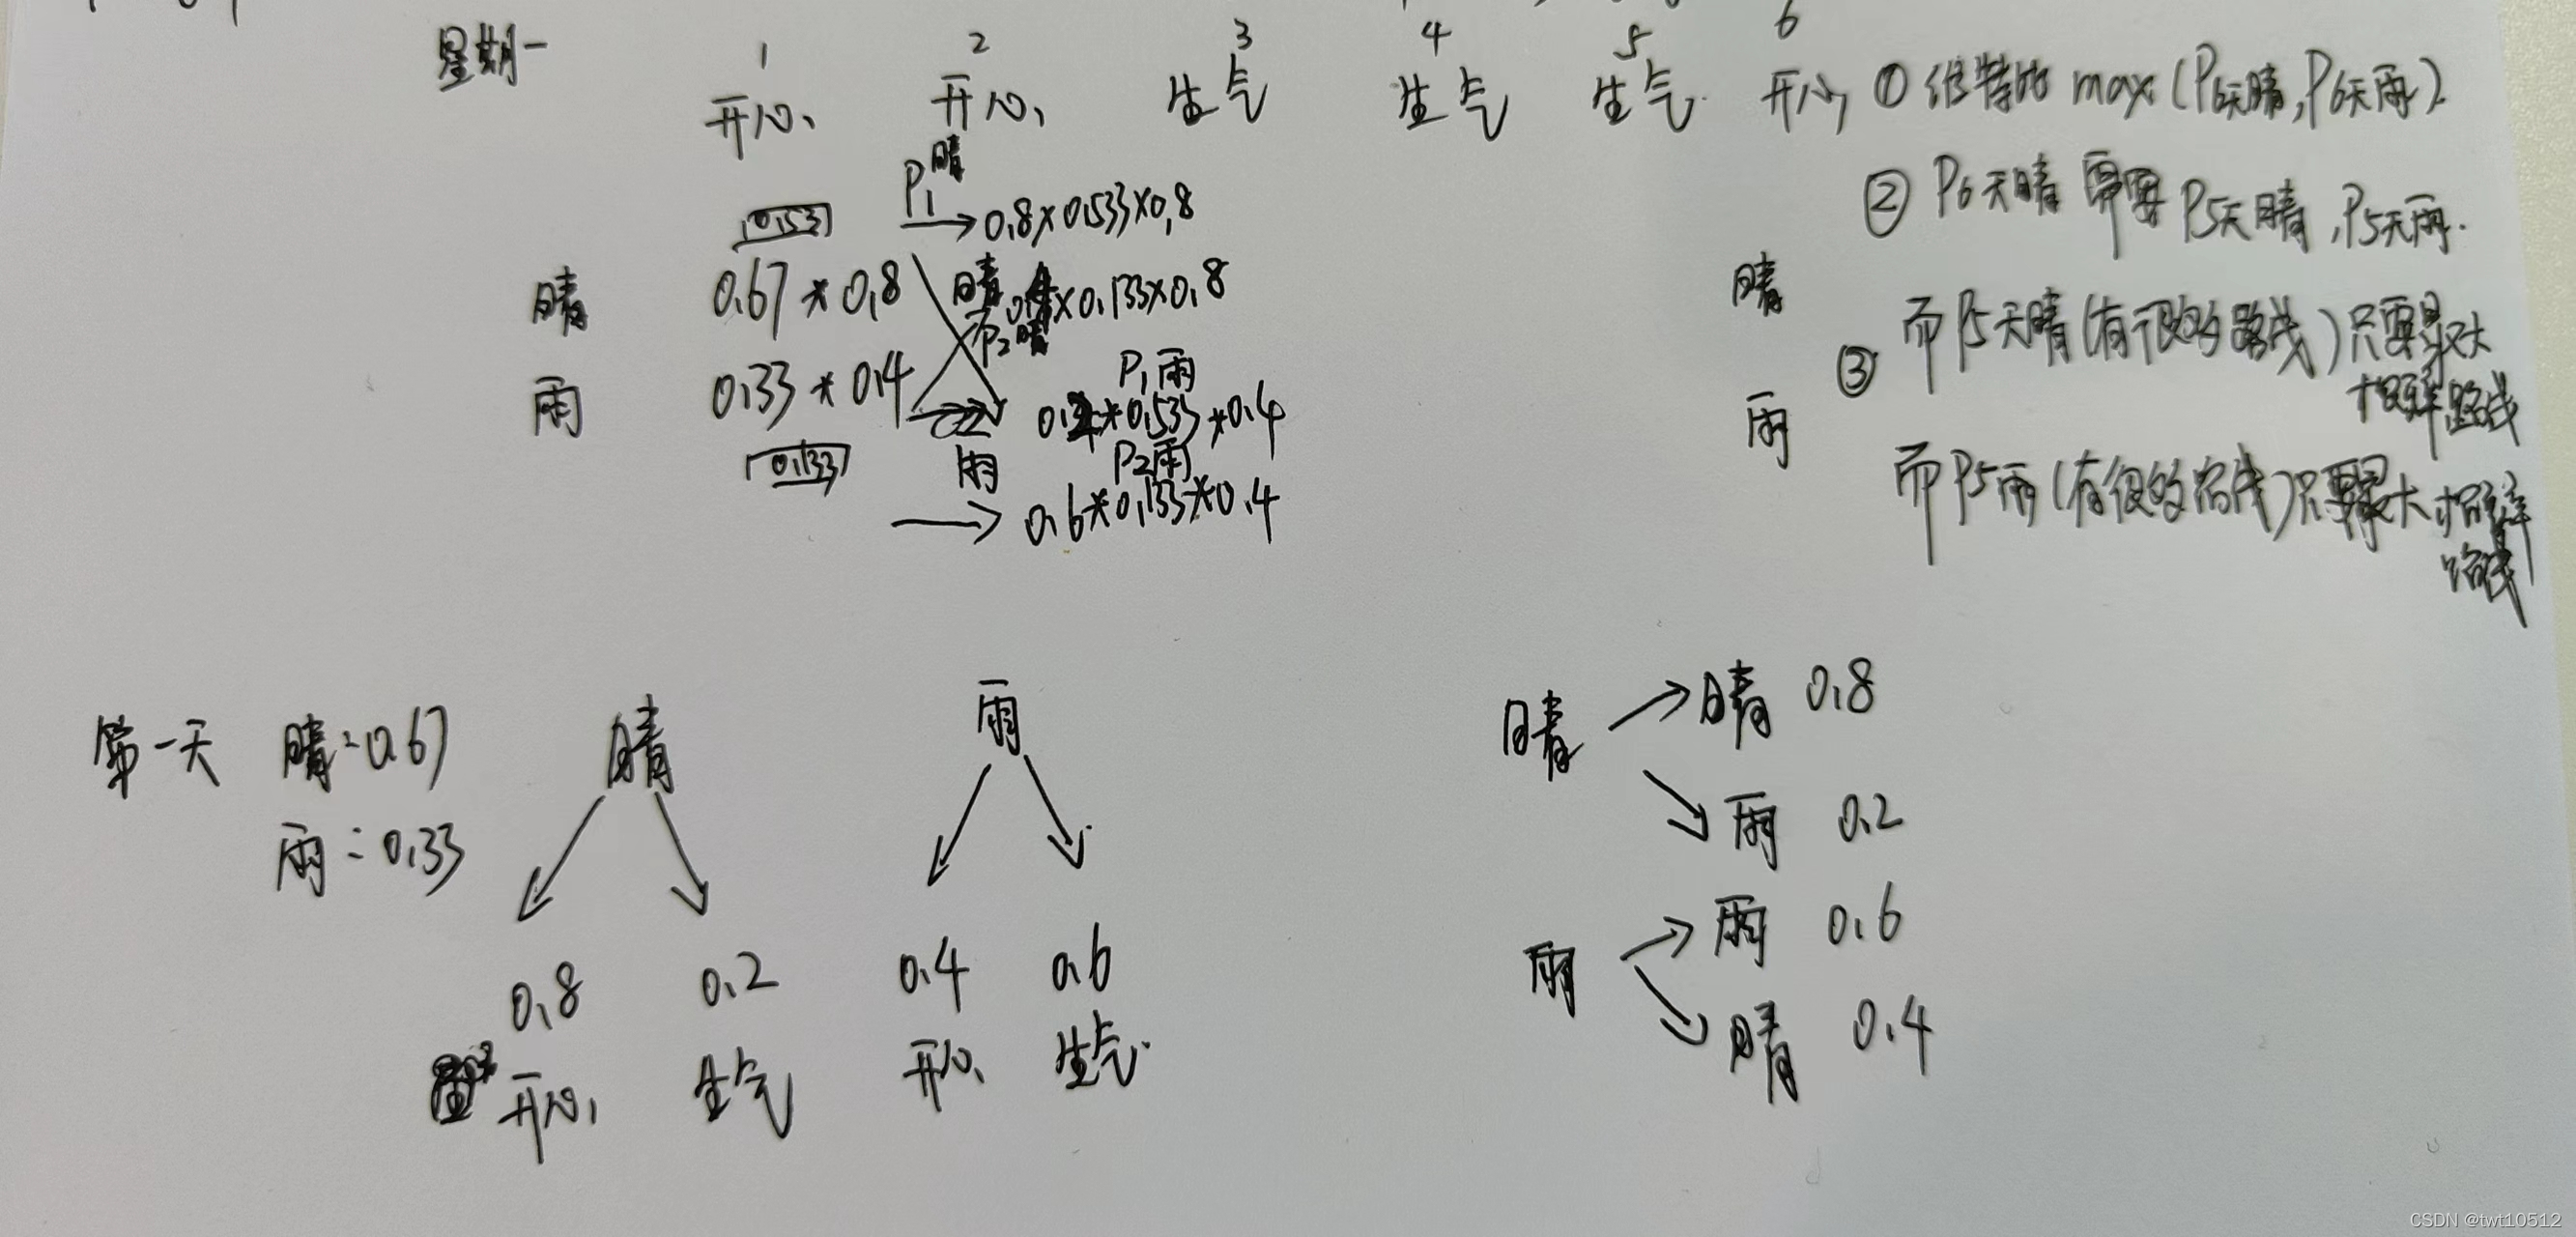 星期一
1 2 3 4 5 6
开心 开心 生气 生气 生气 开心
① 维特比 max(P6天晴,P6天雨)
② P6天晴 需要 P5天晴,P5天雨.
③ 而P5天晴(有很多路线)只要最大
概率路线
而P5雨(有很多路线)只要最大概率
路线
P1晴
0.533 → 0.8×0.533×0.8
晴 0.67 * 0.8
晴 0.4×0.133×0.8
P2晴
雨 0.33 * 0.4
P1雨
0.2*0.533*0.4
0.133 雨 P2雨
→ 0.6*0.133*0.4
晴
雨
第一天 晴:0.67
雨:0.33
晴 雨
0.8 0.2 0.4 0.6
开心 生气 开心 生气.
晴 → 晴 0.8
雨 0.2
雨 → 雨 0.6
晴 0.4
CSDN @twt10512